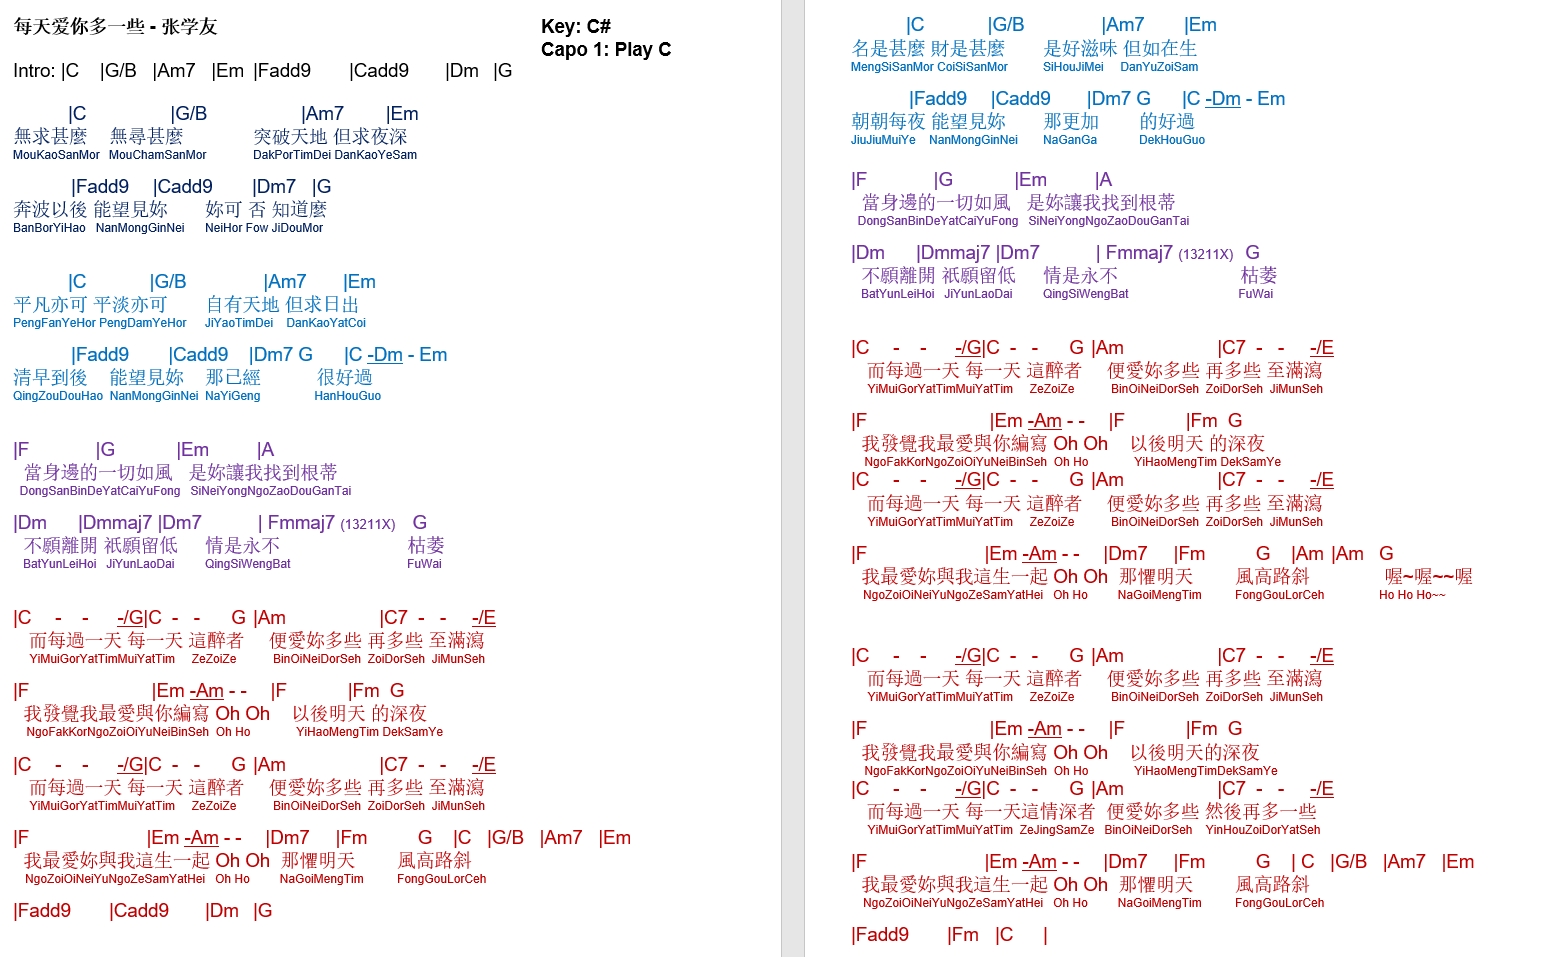 每天爱你多一些 - 张学友
Key: C#
Capo 1: Play C
Intro: |C |G/B |Am7 |Em |Fadd9 |Cadd9 |Dm |G
|C |G/B |Am7 |Em
無求甚麼 無尋甚麼 突破天地 但求夜深
MouKaoSanMor MouChamSanMor DakPorTimDei DanKaoYeSam
|Fadd9 |Cadd9 |Dm7 |G
奔波以後 能望見妳 妳可 否 知道麼
BanBorYiHao NanMongGinNei NeiHor Fow JiDouMor
|C |G/B |Am7 |Em
平凡亦可 平淡亦可 自有天地 但求日出
PengFanYeHor PengDamYeHor JiYaoTimDei DanKaoYatCoi
|Fadd9 |Cadd9 |Dm7 G |C -Dm - Em
清早到後 能望見妳 那已經 很好過
QingZouDouHao NanMongGinNei NaYiGeng HanHouGuo
|F |G |Em |A
當身邊的一切如風 是妳讓我找到根蒂
DongSanBinDeYatCaiYuFong SiNeiYongNgoZaoDouGanTai
|Dm |Dmmaj7 |Dm7 | Fmmaj7 (13211X) G
不願離開 祇願留低 情是永不 枯萎
BatYunLeiHoi JiYunLaoDai QingSiWengBat FuWai
|C - - -/G|C - - G |Am |C7 - - -/E
而每過一天 每一天 這醉者 便愛妳多些 再多些 至滿瀉
YiMuiGorYatTimMuiYatTim ZeZoiZe BinOiNeiDorSeh ZoiDorSeh JiMunSeh
|F |Em -Am - - |F |Fm G
我發覺我最愛與你編寫 Oh Oh 以後明天 的深夜
NgoFakKorNgoZoiOiYuNeiBinSeh Oh Ho YiHaoMengTim DekSamYe
|C - - -/G|C - - G |Am |C7 - - -/E
而每過一天 每一天 這醉者 便愛妳多些 再多些 至滿瀉
YiMuiGorYatTimMuiYatTim ZeZoiZe BinOiNeiDorSeh ZoiDorSeh JiMunSeh
|F |Em -Am - - |Dm7 |Fm G |C |G/B |Am7 |Em
我最愛妳與我這生一起 Oh Oh 那懼明天 風高路斜
NgoZoiOiNeiYuNgoZeSamYatHei Oh Ho NaGoiMengTim FongGouLorCeh
|Fadd9 |Cadd9 |Dm |G
|C |G/B |Am7 |Em
名是甚麼 財是甚麼 是好滋味 但如在生
MengSiSanMor CoiSiSanMor SiHouJiMei DanYuZoiSam
|Fadd9 |Cadd9 |Dm7 G |C -Dm - Em
朝朝每夜 能望見妳 那更加 的好過
JiuJiuMuiYe NanMongGinNei NaGanGa DekHouGuo
|F |G |Em |A
當身邊的一切如風 是妳讓我找到根蒂
DongSanBinDeYatCaiYuFong SiNeiYongNgoZaoDouGanTai
|Dm |Dmmaj7 |Dm7 | Fmmaj7 (13211X) G
不願離開 祇願留低 情是永不 枯萎
BatYunLeiHoi JiYunLaoDai QingSiWengBat FuWai
|C - - -/G|C - - G |Am |C7 - - -/E
而每過一天 每一天 這醉者 便愛妳多些 再多些 至滿瀉
YiMuiGorYatTimMuiYatTim ZeZoiZe BinOiNeiDorSeh ZoiDorSeh JiMunSeh
|F |Em -Am - - |F |Fm G
我發覺我最愛與你編寫 Oh Oh 以後明天 的深夜
NgoFakKorNgoZoiOiYuNeiBinSeh Oh Ho YiHaoMengTim DekSamYe
|C - - -/G|C - - G |Am |C7 - - -/E
而每過一天 每一天 這醉者 便愛妳多些 再多些 至滿瀉
YiMuiGorYatTimMuiYatTim ZeZoiZe BinOiNeiDorSeh ZoiDorSeh JiMunSeh
|F |Em -Am - - |Dm7 |Fm G |Am |Am G
我最愛妳與我這生一起 Oh Oh 那懼明天 風高路斜 喔~喔~~喔
NgoZoiOiNeiYuNgoZeSamYatHei Oh Ho NaGoiMengTim FongGouLorCeh Ho Ho Ho~~
|C - - -/G|C - - G |Am |C7 - - -/E
而每過一天 每一天 這醉者 便愛妳多些 再多些 至滿瀉
YiMuiGorYatTimMuiYatTim ZeZoiZe BinOiNeiDorSeh ZoiDorSeh JiMunSeh
|F |Em -Am - - |F |Fm G
我發覺我最愛與你編寫 Oh Oh 以後明天的深夜
NgoFakKorNgoZoiOiYuNeiBinSeh Oh Ho YiHaoMengTimDekSamYe
|C - - -/G|C - - G |Am |C7 - - -/E
而每過一天 每一天這情深者 便愛妳多些 然後再多一些
YiMuiGorYatTimMuiYatTim ZeJingSamZe BinOiNeiDorSeh YinHouZoiDorYatSeh
|F |Em -Am - - |Dm7 |Fm G | C |G/B |Am7 |Em
我最愛妳與我這生一起 Oh Oh 那懼明天 風高路斜
NgoZoiOiNeiYuNgoZeSamYatHei Oh Ho NaGoiMengTim FongGouLorCeh
|Fadd9 |Fm |C |